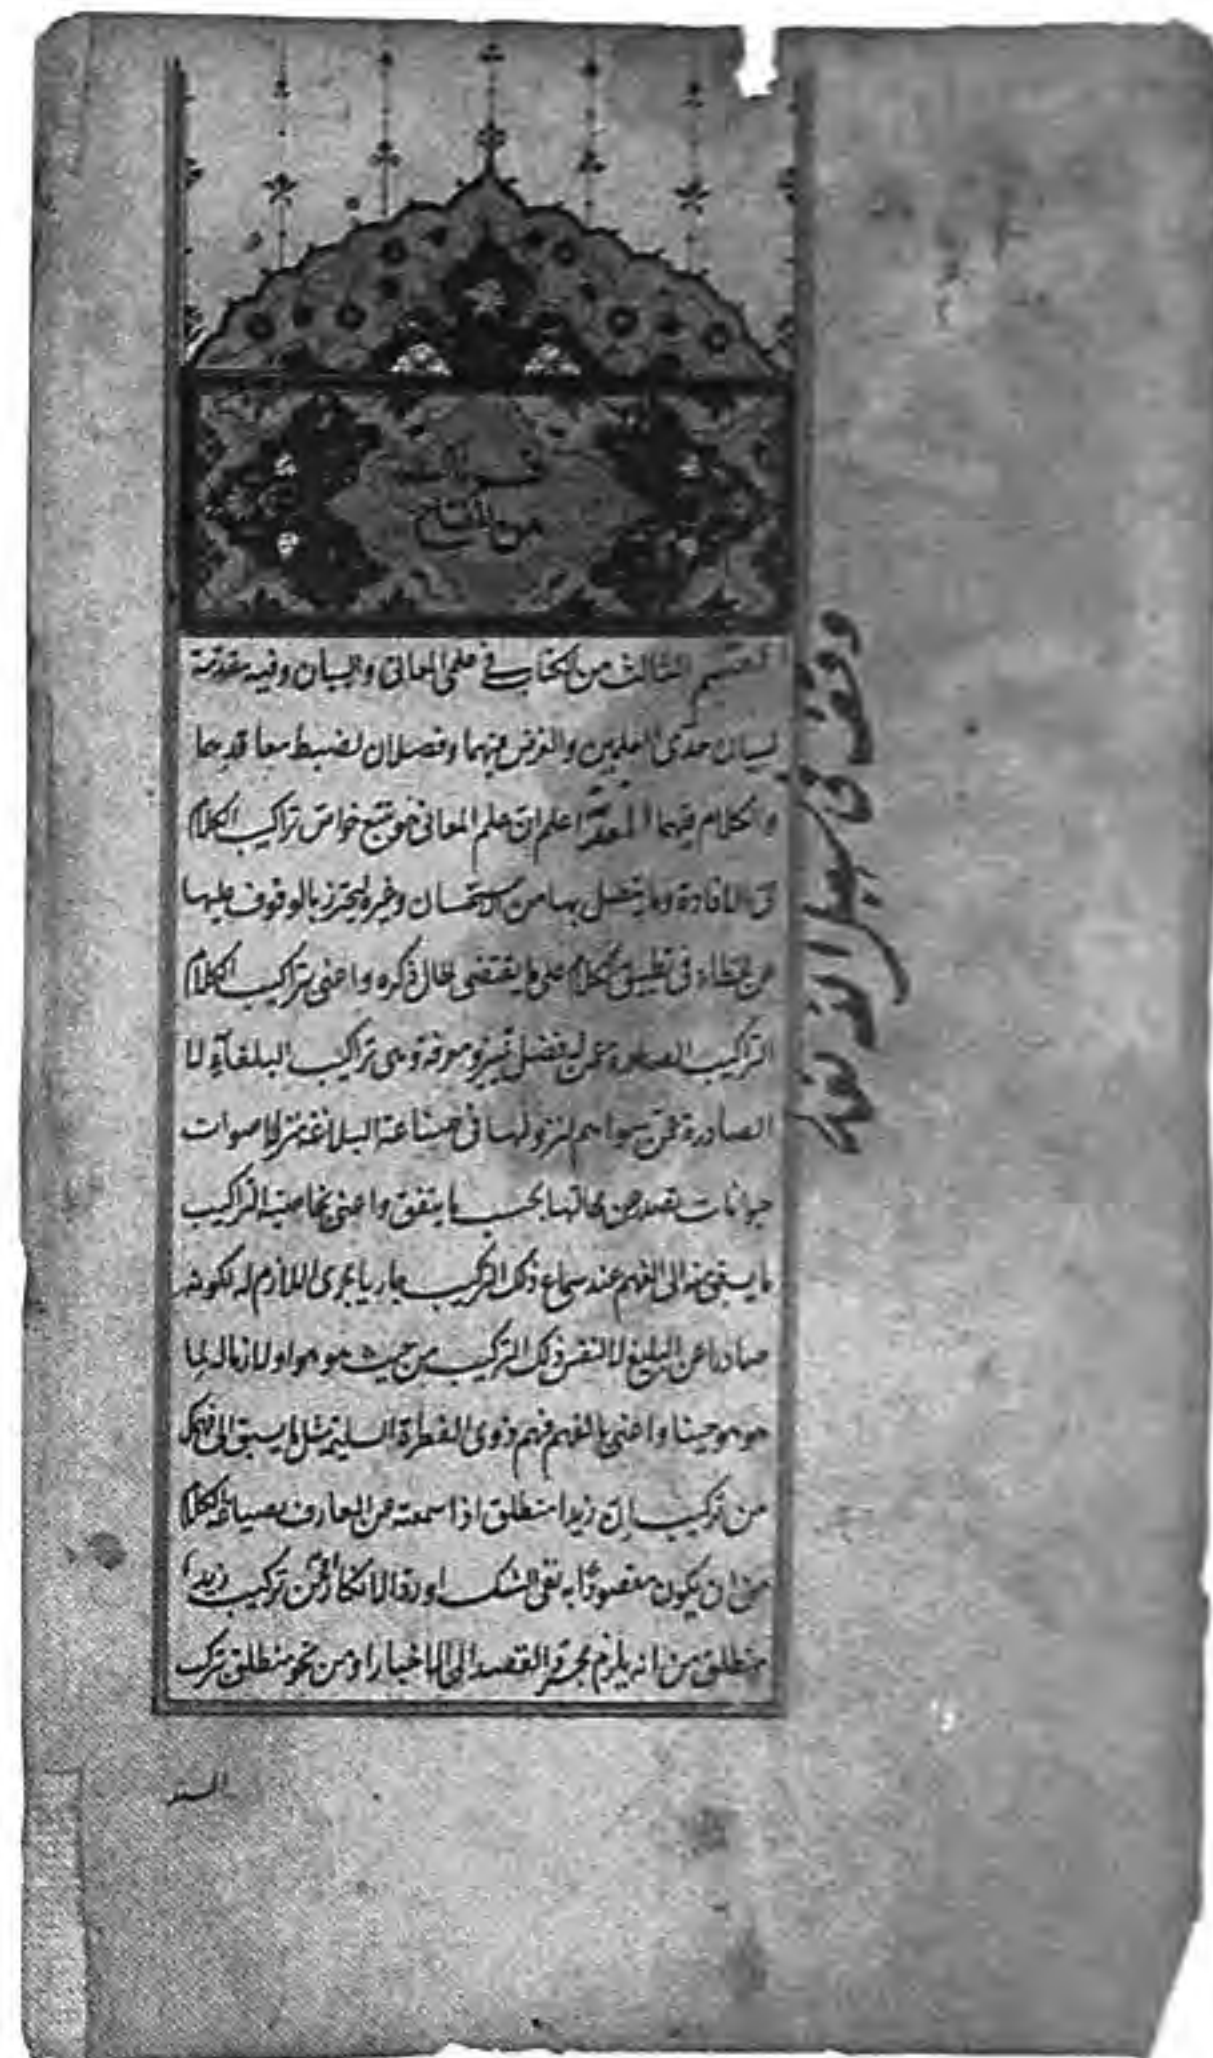 قسم الثالث
من المفتاح
القسم الثالث من الكتاب في علمي المعاني والبيان وفيه مقدمة
لبيان حدى العلمين والغرض فيهما وفصلان لضبط معاقدهما
والكلام فيهما المقدمة اعلم ان علم المعاني هو تتبع خواص تراكيب الكلام
في الافادة وما يتصل بها من الاستحسان وغيره ليحترز بالوقوف عليها
عن الخطاء في تطبيق الكلام على ما يقتضى الحال ذكره واعنى بتراكيب الكلام
التراكيب الصادرة عمن له فضل تميز ومعرفة وهى تراكيب البلغاء لا
الصادرة عمن سواهم لنزولها في صناعة البلاغة منزلة اصوات
حيوانات تصدر عن محالها بحسب ما يتفق واعنى بخاصية التراكيب
ما يسبق منه الى الفهم عند سماع ذلك التركيب جاريا مجرى اللازم له لكونه
صادرا عن البليغ لا لنفس ذلك التركيب من حيث هو هو او لازما له لما
هو هو حينا واعنى بالفهم فهم ذوى الفطرة السليمة مثل ما يسبق الى فهمك
من تركيب ان زيدا منطلق اذا سمعته عن العارف بصياغة الكلام
من ان يكون مقصودا به نفى الشك او رد الانكار او من تركيب زيد
منطلق من انه يلزم مجرد القصد الى الاخبار او من نحو منطلق بترك
المسند
وقف في سبيل الله تعالى